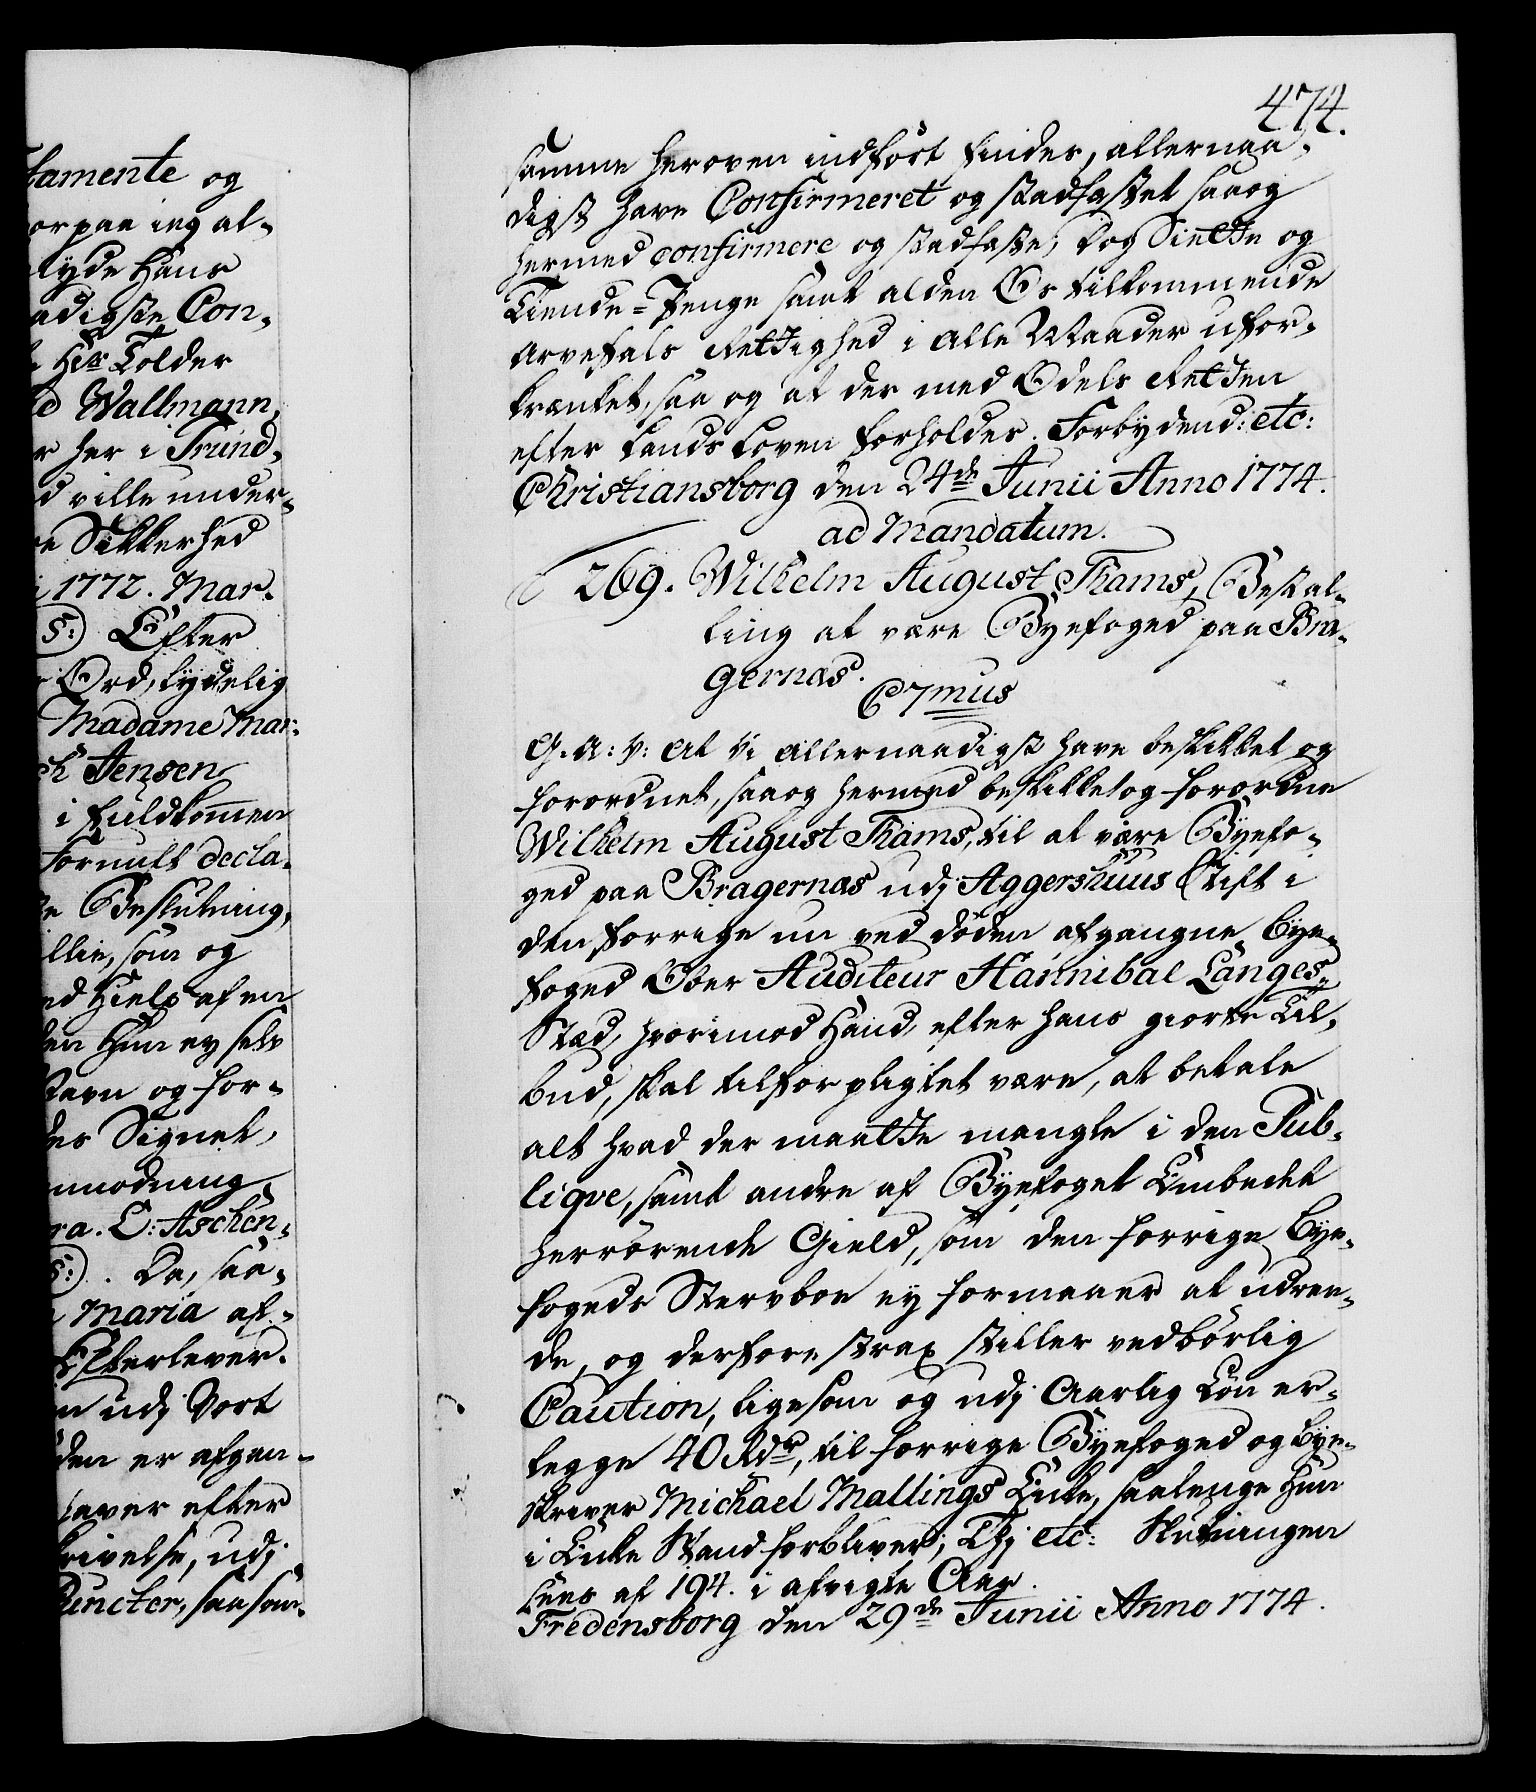 tamente og
orpaa ieg al-
lyde Hans
adigste Con-
Hr Tolder
Wallmann,
r her i Trund-
d ville under-
re Sikkerhed
1772. Mar-
S:) Efter
Ord, lydelig
Madame Mar-
ch Jensen
i fuldkommen
fornuft decla-
te Beslutning,
llie, som og
ed Hielp af en
en Hun ey selv
Navn og for-
des Signet,
nmodning
ra. C: Aschen-
S:). Da, saa-
Maria af-
Efterlever.
n udj Vort
den er afgan-
haver efter
krivelse, udj
Puncter, saasom
474.
samme heroven indført findes, allernaa-
digst have Confirmeret og stadfæstet saaog
hermed confirmere og stadfæste; dog Siette og
Tiende-Penge samt alden Os tilkommende
Arvefals Rettighed i alle Maader ufor-
krænket, saa og at der med Odels Retten
efter Lands Loven forholdes. Forbydend: etc:
Christiansborg den 24de Junii Anno 1774.
ad Mandatum.
269. Wilhelm August Thams, Bestal-
ling at være Byefoged paa Bra-
gernæs.
C7mus
G. A: V: At Vi Allernaadigst have beskikket og
forordnet, saaog hermed beskikket og forordne
Wilhelm August Thams, til at være Byefo-
ged paa Bragernæs udj Aggershuus Stift i
den forrige nu ved døden afgangne Bye-
foged Ober Auditeur Hannibal Langes
Stæd, hvorimod Hand, efter hans giorte Til-
bud, skal tilforpligtet være, at betale
alt hvad der maatte mangle i den Pub-
liqve, samt andre af Byefoget Embedet
herrørende Gield, som den forrige Bye-
fogeds Stervboe ey formaaer at udree-
de, og derfore strax stiller vedbørlig
Caution, ligesom og udj Aarlig Løn er-
legge 40 Rdr, til forrige Byefoged og Bye-
skriver Michael Mallings Enke, saalenge Hun
i Enke Stand forbliver; Thj etc: Slutningen
sees af 194. i afvigte Aar.
Fredensborg den 29de Junii Anno 1774.